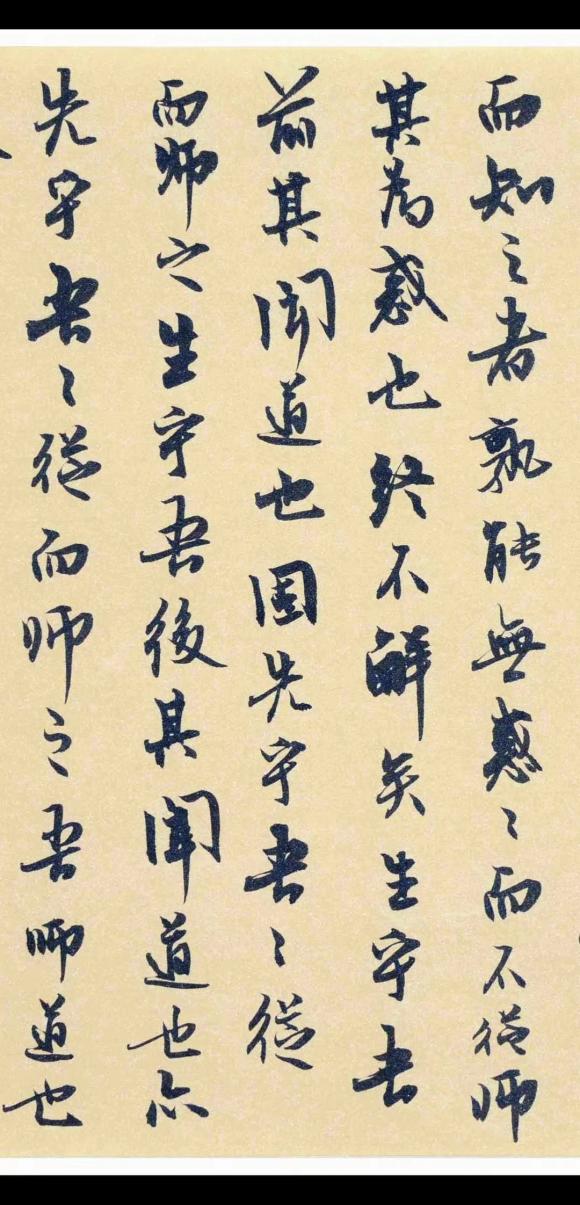 而知之者孰能無惑〻而不從師
其為惑也終不解矣生乎吾
前其聞道也固先乎吾〻從
而師之生乎吾後其聞道也亦
先乎吾〻從而師之吾師道也